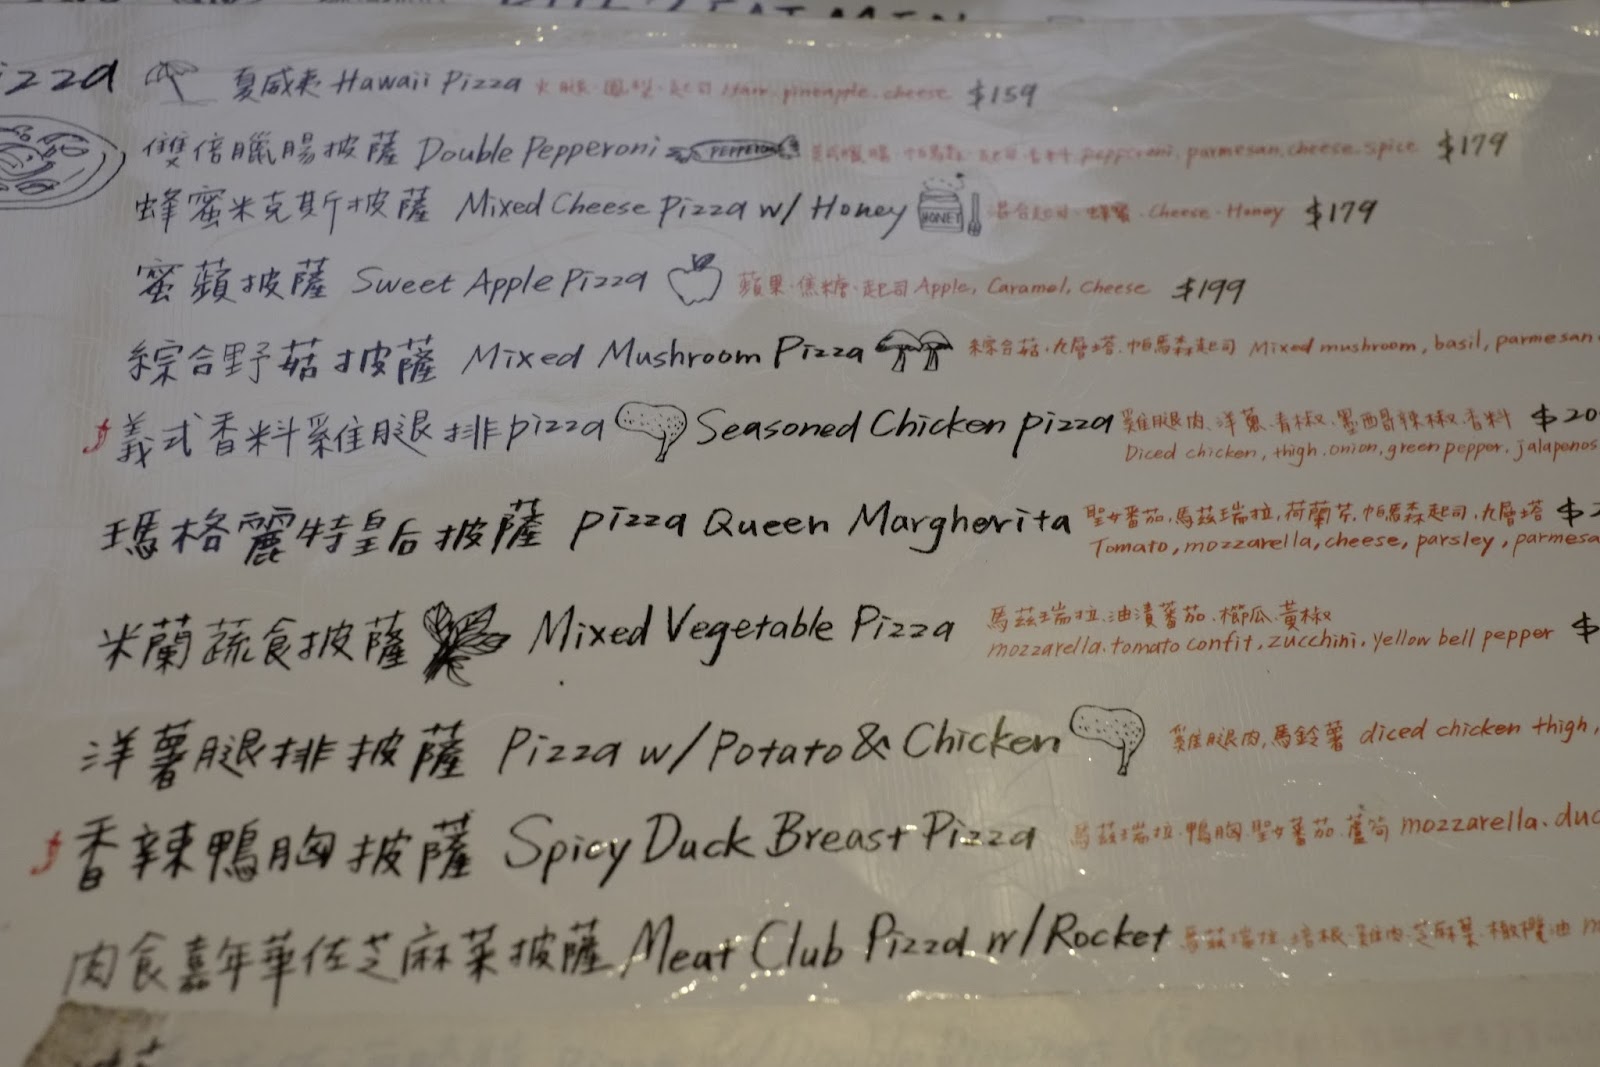 夏威夷 Hawaii Pizza 火腿．鳳梨．起司 Ham．pineapple．cheese $159
雙倍臘腸披薩 Double Pepperoni PEPPERONI pepperoni, parmesan, cheese．spice $179
蜂蜜米克斯披薩 Mixed Cheese Pizza w/ Honey HONEY 混合起司．蜂蜜．Cheese．Honey $179
蜜蘋披薩 Sweet Apple Pizza 蘋果．焦糖．起司 Apple, Caramel, Cheese $199
綜合野菇披薩 Mixed Mushroom Pizza 綜合菇．九層塔．帕馬森起司 Mixed mushroom, basil, parmesan
義式香料雞腿排pizza Seasoned Chicken pizza 雞腿肉．洋蔥．青椒．墨西哥辣椒．香料 $20
Diced chicken, thigh．onion, green pepper．jalapenos
瑪格麗特皇后披薩 pizza Queen Margherita 聖女番茄, 馬茲瑞拉, 荷蘭芹, 帕馬森起司, 九層塔 $2
Tomato, mozzarella, cheese, parsley, parmesa
米蘭蔬食披薩 Mixed Vegetable Pizza 馬茲瑞拉．油漬蕃茄．櫛瓜．黃椒
mozzarella．tomato confit．zucchini．yellow bell pepper $
洋薯腿排披薩 Pizza w/ Potato & Chicken 雞腿肉, 馬鈴薯 diced chicken thigh,
香辣鴨胸披薩 Spicy Duck Breast Pizza 馬茲瑞拉．鴨胸．聖女蕃茄．蘆筍 mozzarella．duc
肉食嘉年華佐芝麻菜披薩 Meat Club Pizza w/ Rocket 馬茲瑞拉．培根．雞肉．芝麻葉．橄欖油